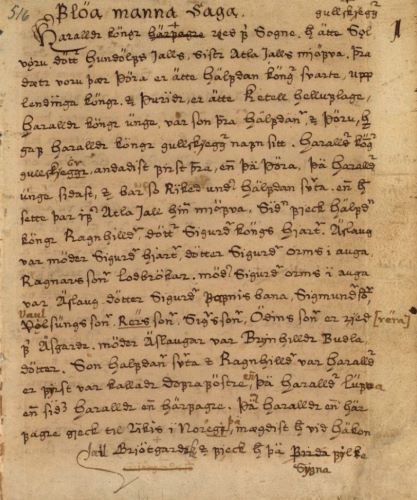 516
Flóa manna Saga.
gullskjeggr
1
Haralldr kóngr hárfagre reeð f Sogne. h átte Sól
vǫru dótt Hundólfs Jalls, sistr Atla Jalls miófva. Þra
dætr voru þær Þóra er átte Hálfdan kóng svarte, upp
lendinga kóngr. & Þuriðr, er átte Ketell helluflage,
Haralldr kóngr únge var son þra Hálfdanr & Þóru, h
gaf Haralldr kóngr gullskjeggr nafn sitt. Haralldr kógr
gullskjeggr andadist first þra, en þá Þóra, þá Haralldr
únge sidast, & bar so Ríked undr Hálfdan svarta. en h
sette þar ifr Atla Jall hinn miófva, Sidn fieck Hálfdan
kóngr Ragnhilldr, dóttr Sigurdr kóngs hjart. Áslaug
var móder Sigurdr hiartr, dótter Sigurdr orms i auga,
Ragnars sonr Lodbrókar. módr Sigurdr orms i auga
var Áslaug dótter Sigurdr Fofnis bana, Sigmundssonr,
Vǫlsúngs sonr, Rers sonr, Sigrs sonr, Ódins sonr er ried [réra]
f Ásgarde. móder Áslaugar var Brÿnhilldr Budla
dótter. Son Hálfdanr svarta & Ragnhilldr var Haralldr
er first var kalladr dofrafóstre, en þá Haralldr lúfva
en sidst Haralldr en hárfagre. Þar Haralldr en hár
fagre gieck til Ríkis i Noregi, þá mægdist h vid Hákon
Jall Briótgardsson & fieck h þá Firda fylke
Sygna